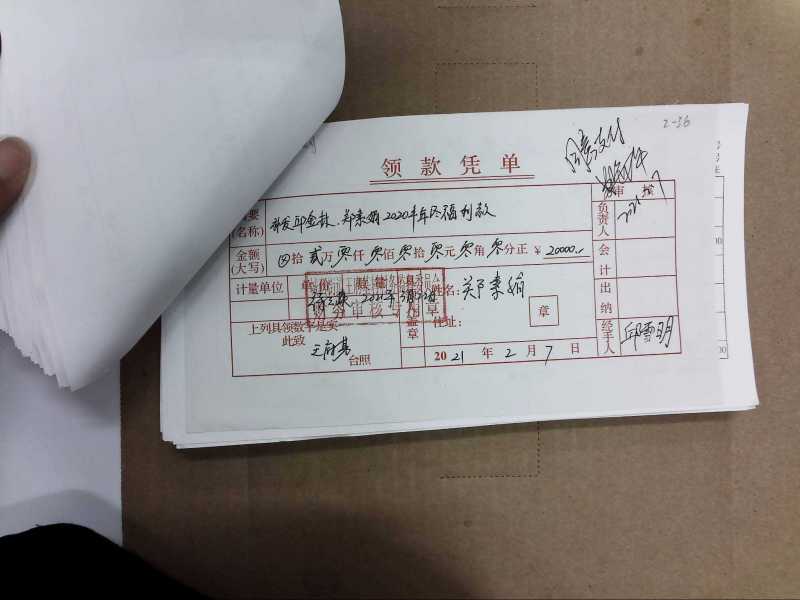 2-36
同意支付
领款凭单
审核
摘要
(名称)
补发邱金林、郑素娟2020年年终福利款
负责人
2021.2.7
金额
(大写)
⊗拾贰万零仟零佰零拾零元零角零分正 ¥20000.-
会计
计量单位 单价 数量
姓名: 郑素娟
2021年3月
财务审核专用章
住址:
章
盖章
出纳
上列具领数字是实
此致
台照
2021年2月7日
经手人
邱雪明